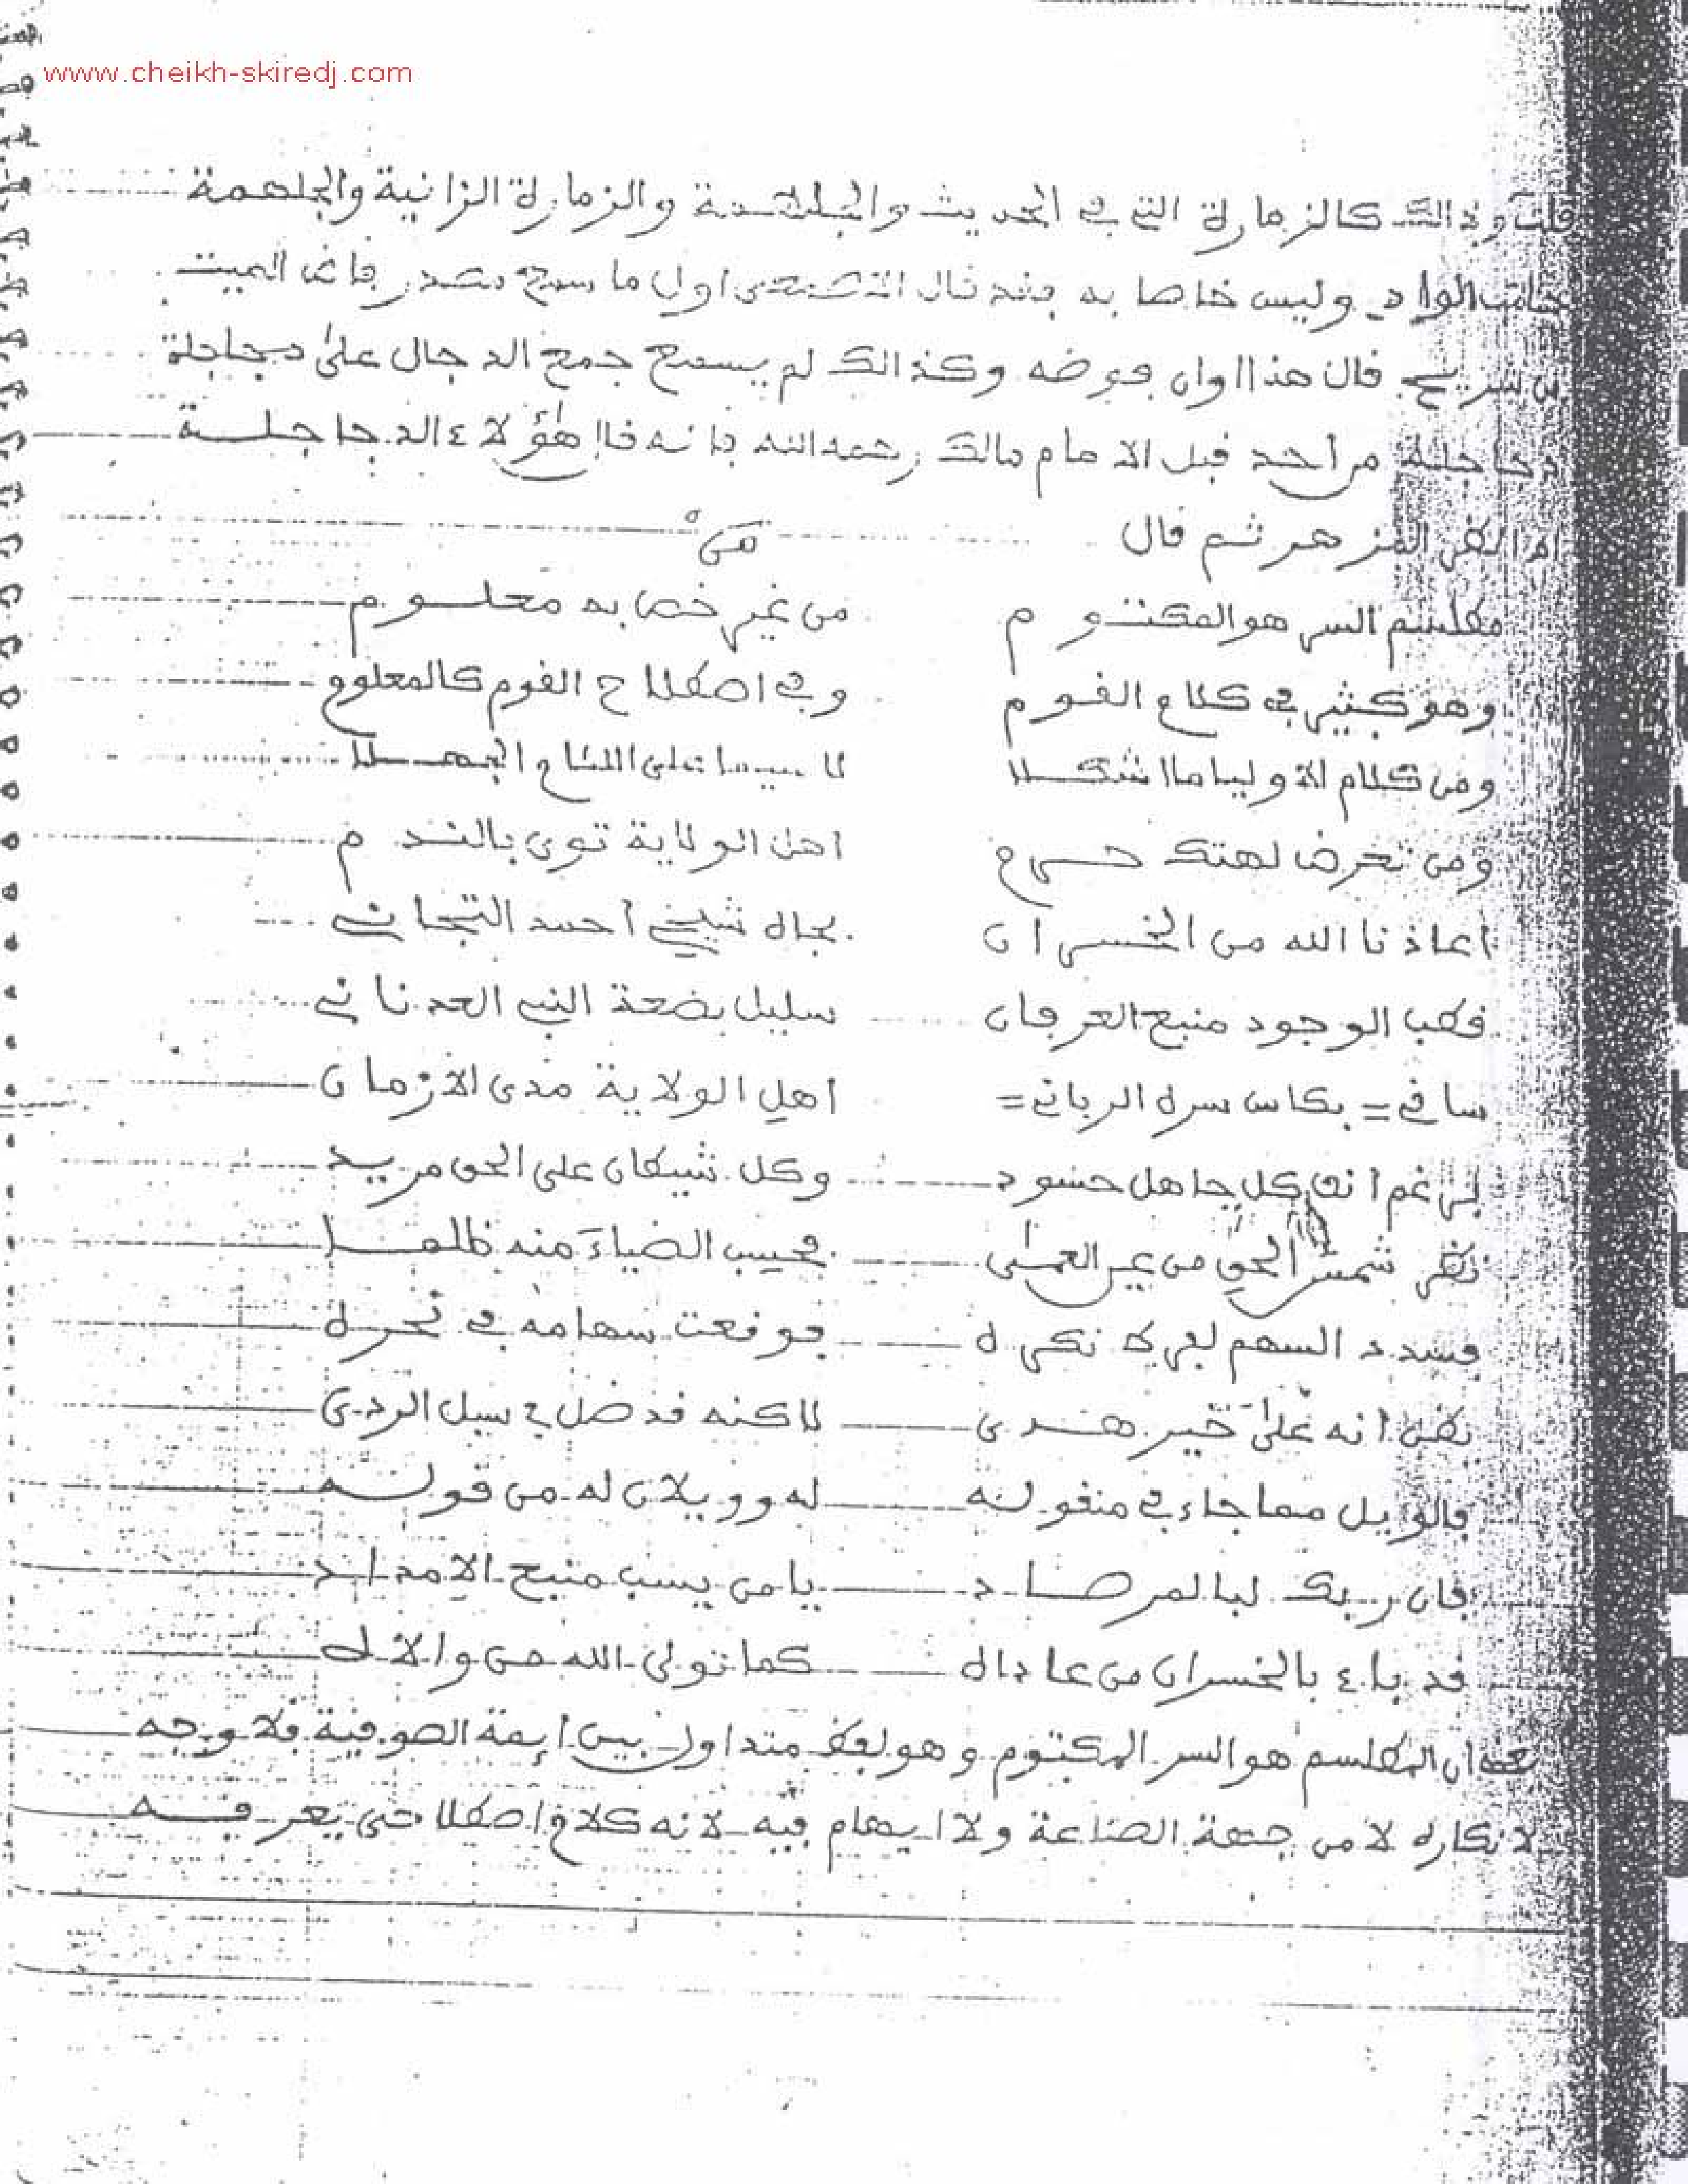 www.cheikh-skiredj.com
قلت وذالك كالزمارة التي في الحديث والزمارة الزانية والجلهمة
جانب الواد وليس خاصا به فقد قال اول ما سمع مصدر فاض الميت
من شريح قال هذا اوان فوضه وكذالك لم يسمع جمع الدجال على دجاجلة
دجاجلة من أحد قبل الامام مالك رحمه الله فانه قال هؤلاء الدجاجلة
اه انظر المزهر ثم قال
مطلسم السر هو المكتوم من غير خص به معلوم
وهو كثير في كلام القوم وفي اصطلاح القوم كالمعلوم
ومن كلام الاوليا ما اشكلا لا سيما على الجهلا
ومن تعرض لهتك حرم اهل الولاية توى بالندم
أعاذنا الله من الخسران بجاه شيخي أحمد التجاني
قطب الوجود منبع العرفان سليل بضعة النبي العدناني
ساقي = بكاس سره الرباني = أهل الولاية مدى الأزمان
لرغم انف كل جاهل حسود وكل شيطان على الحق مريد
نظر شمس الحق من عين العمى فحسب الضياء منه ظلما
فسدد السهم لفرط نكره فوقعت سهامه في نحره
يظن انه على خير هدى لاكنه قد ضل في سبل الردى
فالويل مما جاء في منقوله له وويلان له من قوله
فان ربك لبالمرصاد يا من يسب منبع الإمداد
قد باء بالخسران من عاداه كما تولى الله من والاه
يعني ان المطلسم هو السر المكتوم وهو لفظ متداول بين أيمة الصوفية فلا وجه
لانكاره لا من جهة الصناعة ولا ايهام فيه لانه كلام اصطلاحي يعرفه